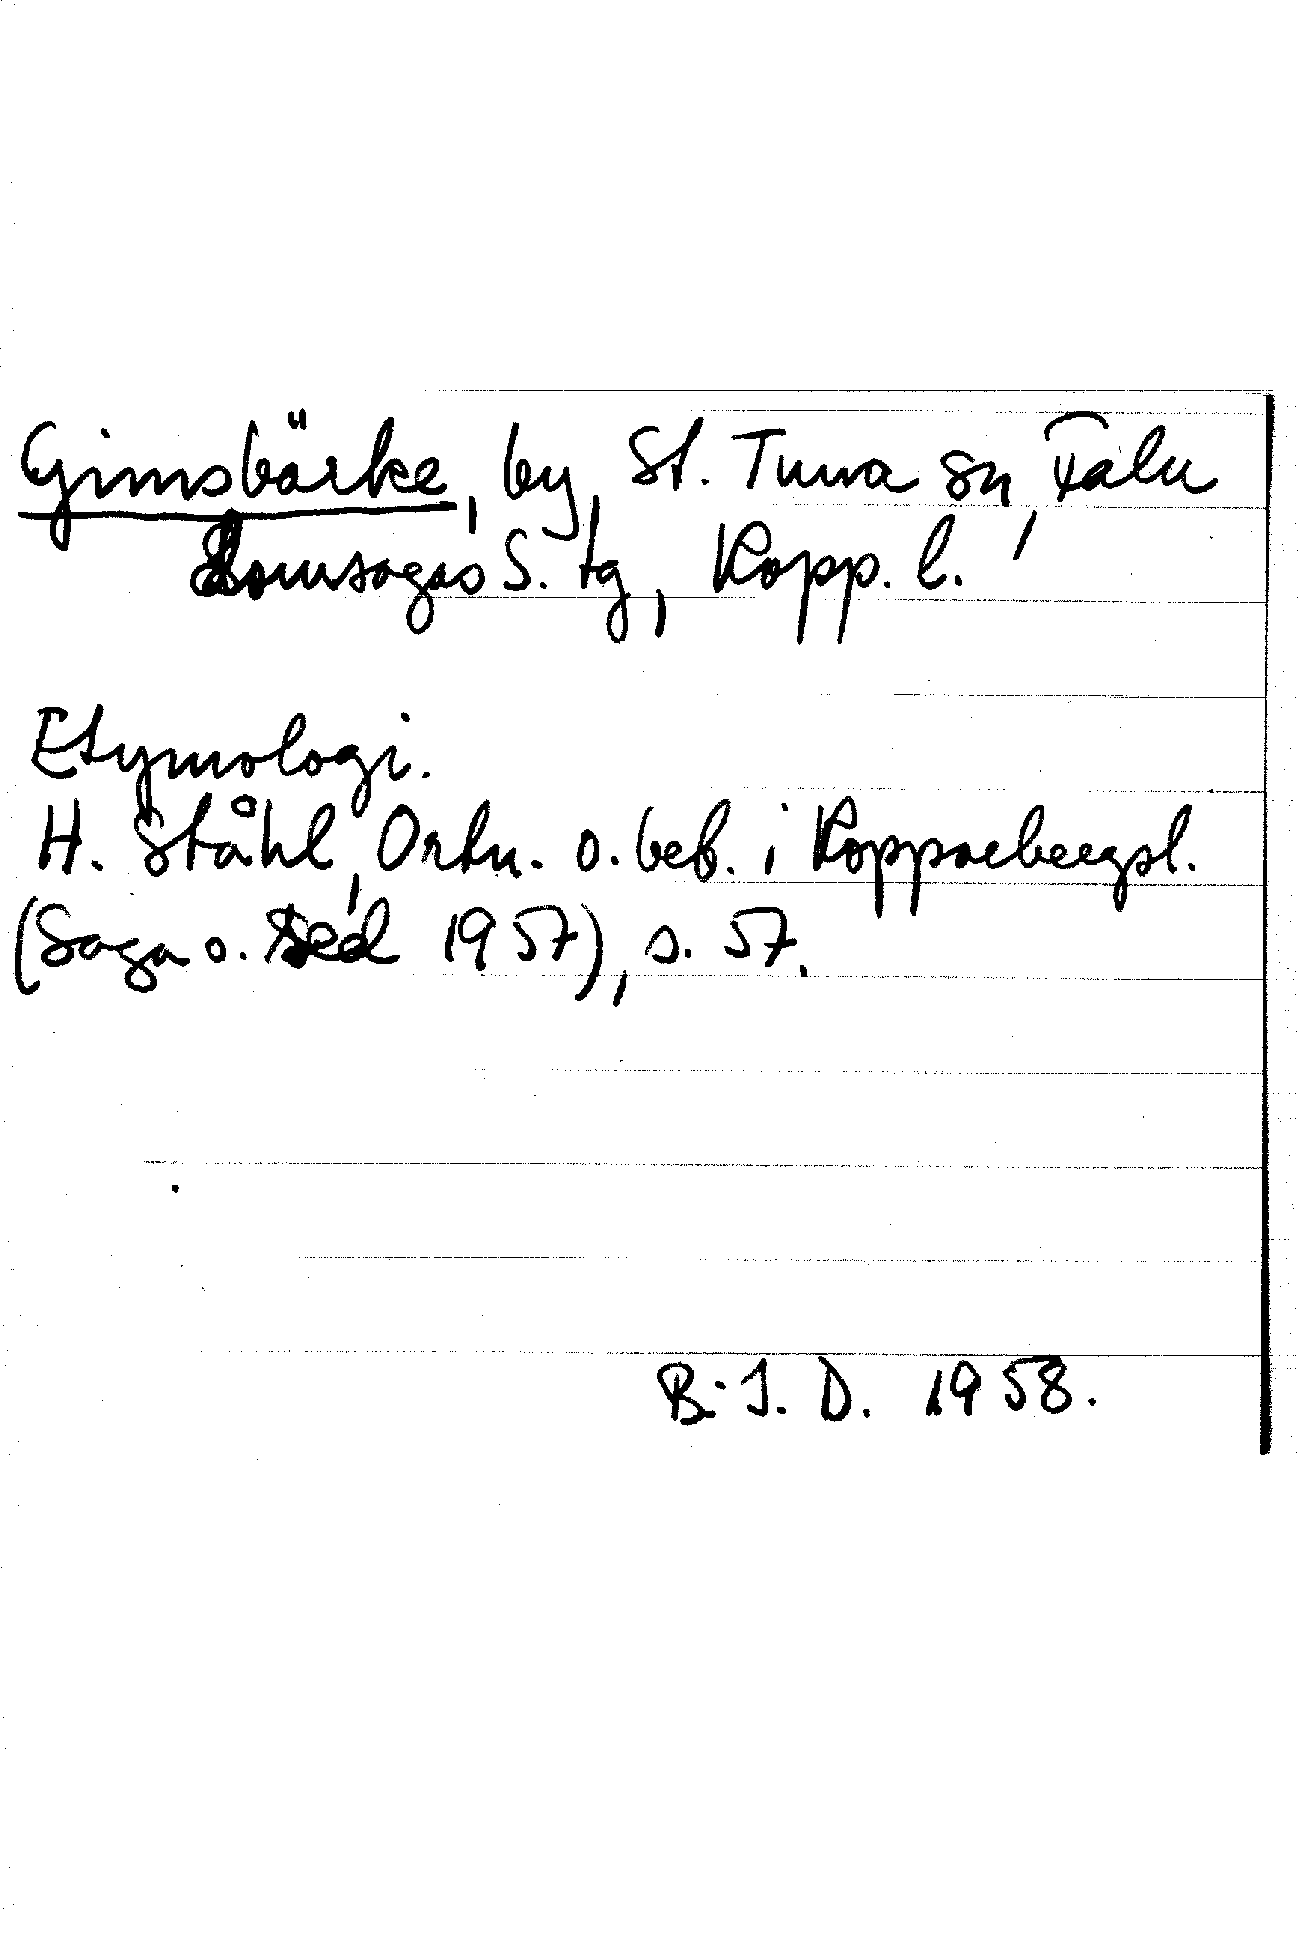 Gimsbärke, by, St. Tuna sn, Falu
Domsagas S. tg, Kopp. l.
Etymologi.
H. Ståhl, Ortn. o. beb. i Kopparbergsl.
(Saga o. Sed 1957), s. 57.
B. J. D. 1958.